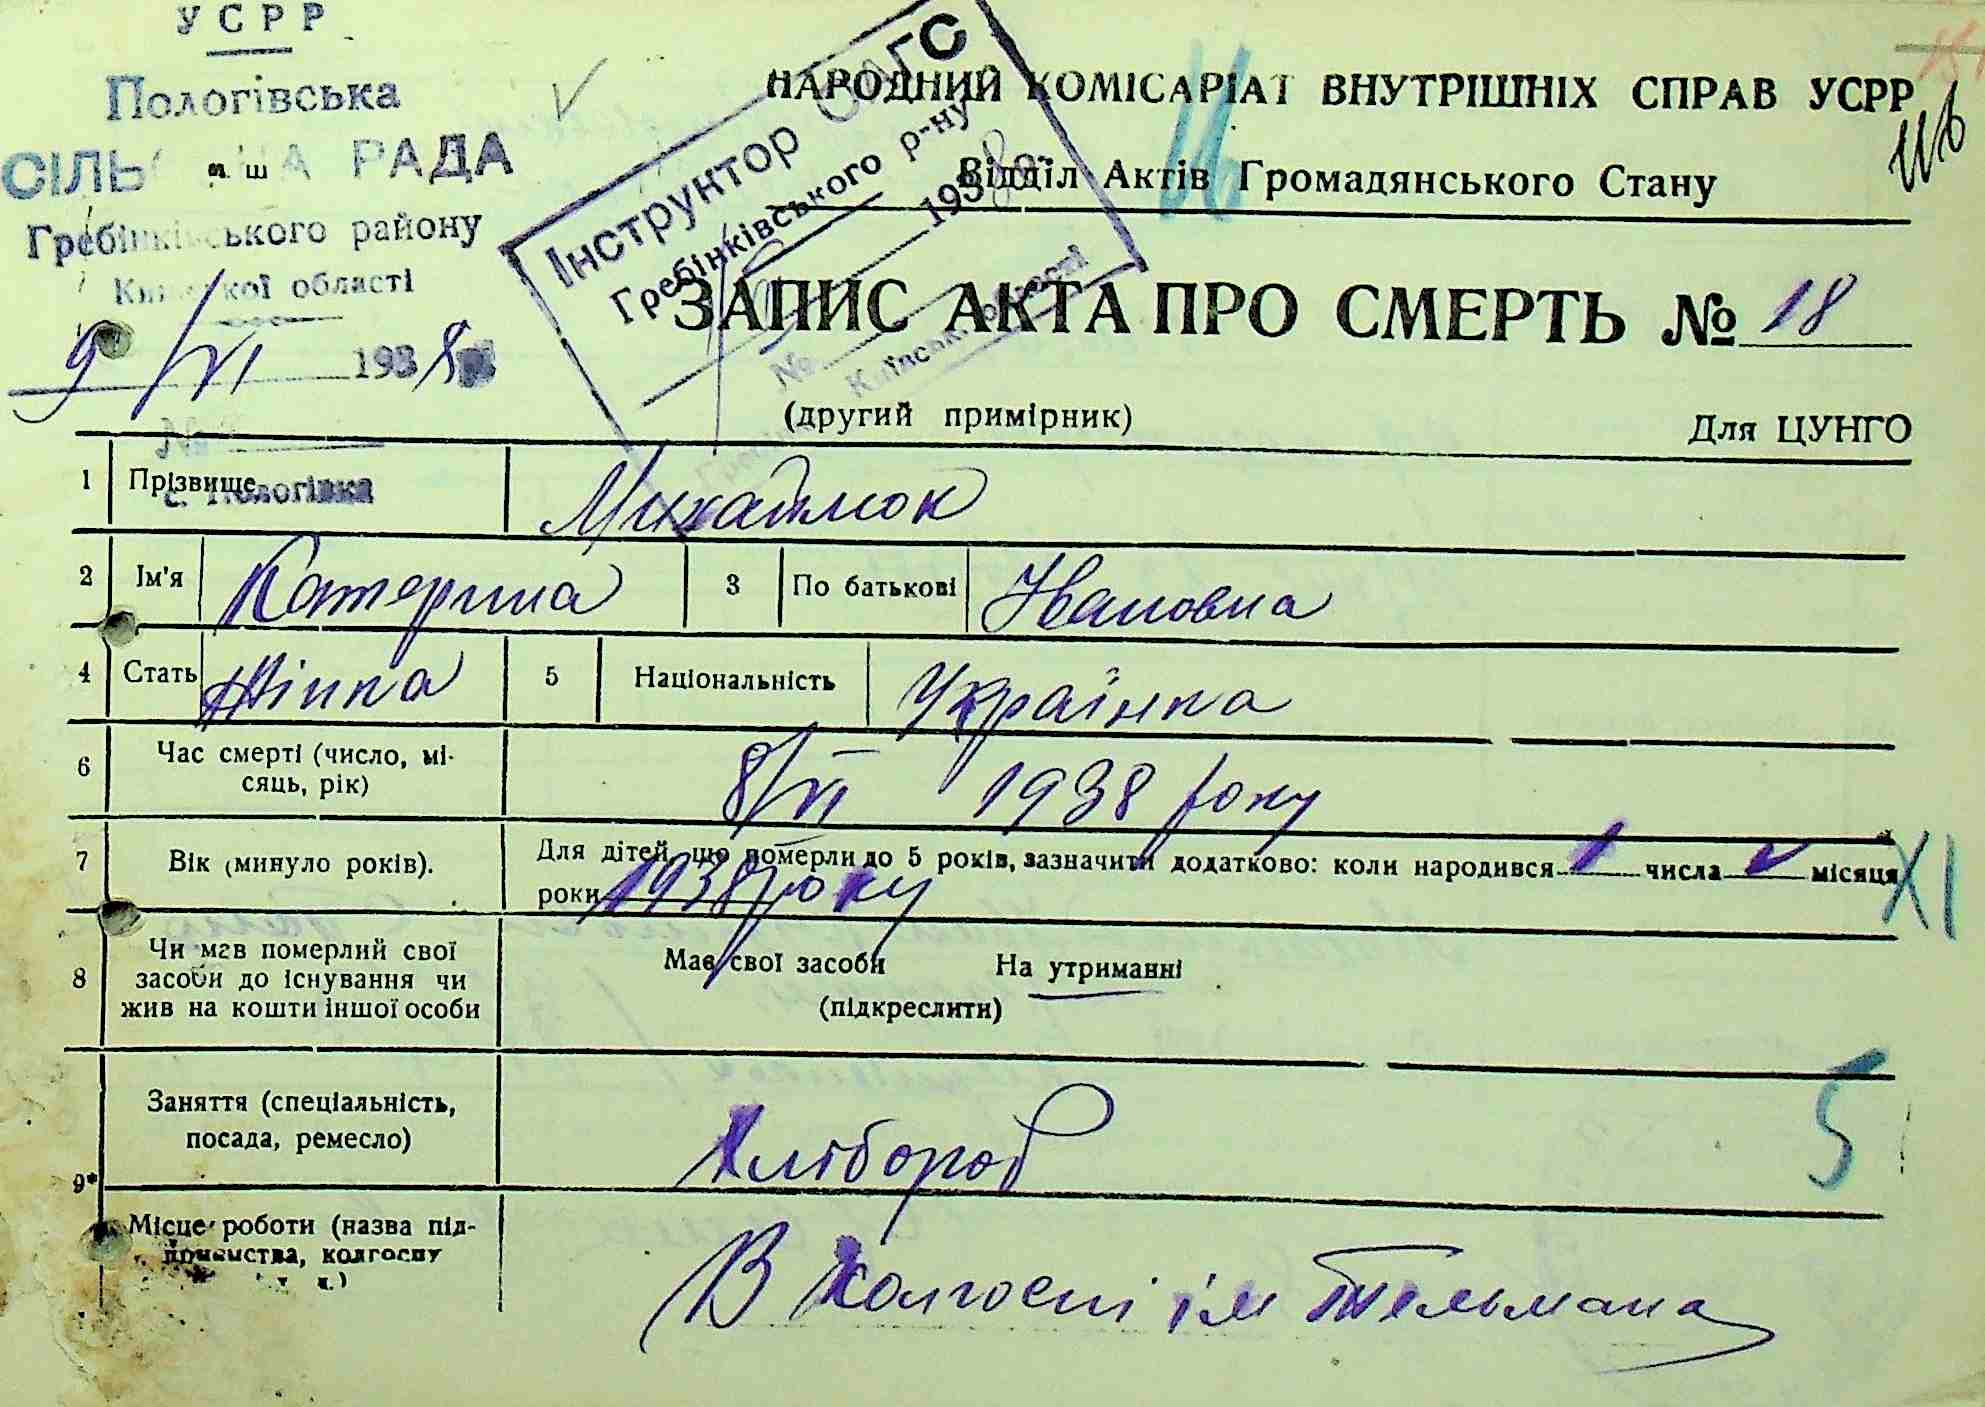 УСРР
Пологівська
СІЛЬ А РАДА
Гребінківського району
Київської області
9/VI 1938
с. Пологівка
Інструктор ОАГС
Гребінківського р-ну
193
№
Київської області
НАРОДНИЙ КОМІСАРІАТ ВНУТРІШНІХ СПРАВ УСРР
Відділ Актів Громадянського Стану
ЗАПИС АКТА ПРО СМЕРТЬ № 18
(другий примірник) Для ЦУНГО
1 Прізвище Михайлюк
2 Ім'я Катерина 3 По батькові Івановна
4 Стать Жінка 5 Національність Українка
6 Час смерті (число, мі-
сяць, рік) 8/VI 1938 року
7 Вік (минуло років). Для дітей, що померли до 5 років, зазначити додатково: коли народився 1 числа V місяця
роки 1938 року
XI
8 Чи мав померлий свої
засоби до існування чи
жив на кошти іншої особи
Має свої засоби На утриманні
(підкреслити)
5
9* Заняття (спеціальність,
посада, ремесло) Хлібороб
Місце роботи (назва під-
приємства, колгоспу
і т. д.) В колгоспі ім Тельмана